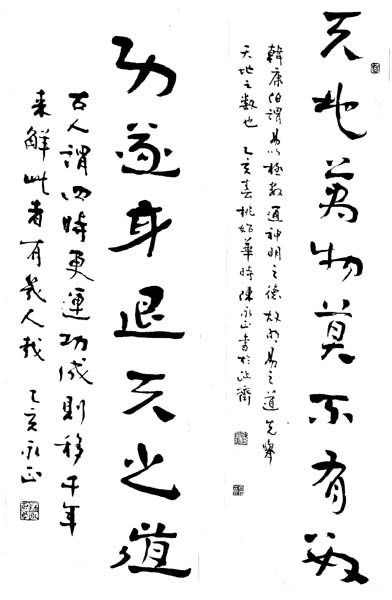 天地萬物莫不有數
韓康伯謂易以極數通神明之德故明易之道先舉
天地之數也 乙亥春桃始華時陳永正書於沚齋
功遂身退天之道
古人謂四時更運功成則移千年
来觧此者有幾人哉 乙亥永正